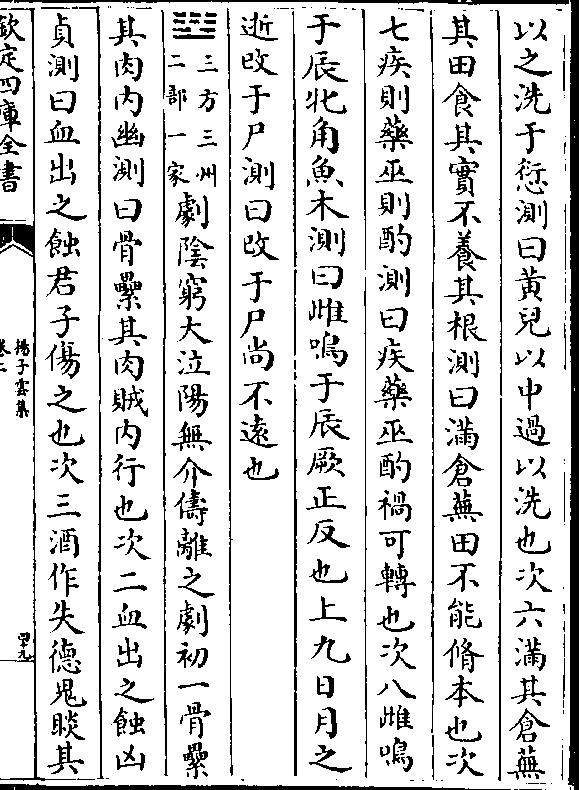 以之洗于愆測曰黃兒以中過以洗也次六滿其倉蕪
其田食其實不養其根測曰滿倉蕪田不能脩本也次
七疾則藥巫則酌測曰疾藥巫酌禍可轉也次八雌鳴
于辰牝角魚木測曰雌鳴于辰厥正反也上九日月之
逝改于尸測曰改于尸尚不遠也
三方三州二部一家劇陰窮大泣陽無介儔離之劇初一骨纍
其肉内幽測曰骨纍其肉賊内行也次二血出之蝕凶
貞測曰血出之蝕君子傷之也次三酒作失德鬼睒其
欽定四庫全書
揚子雲集
卷二
四十九